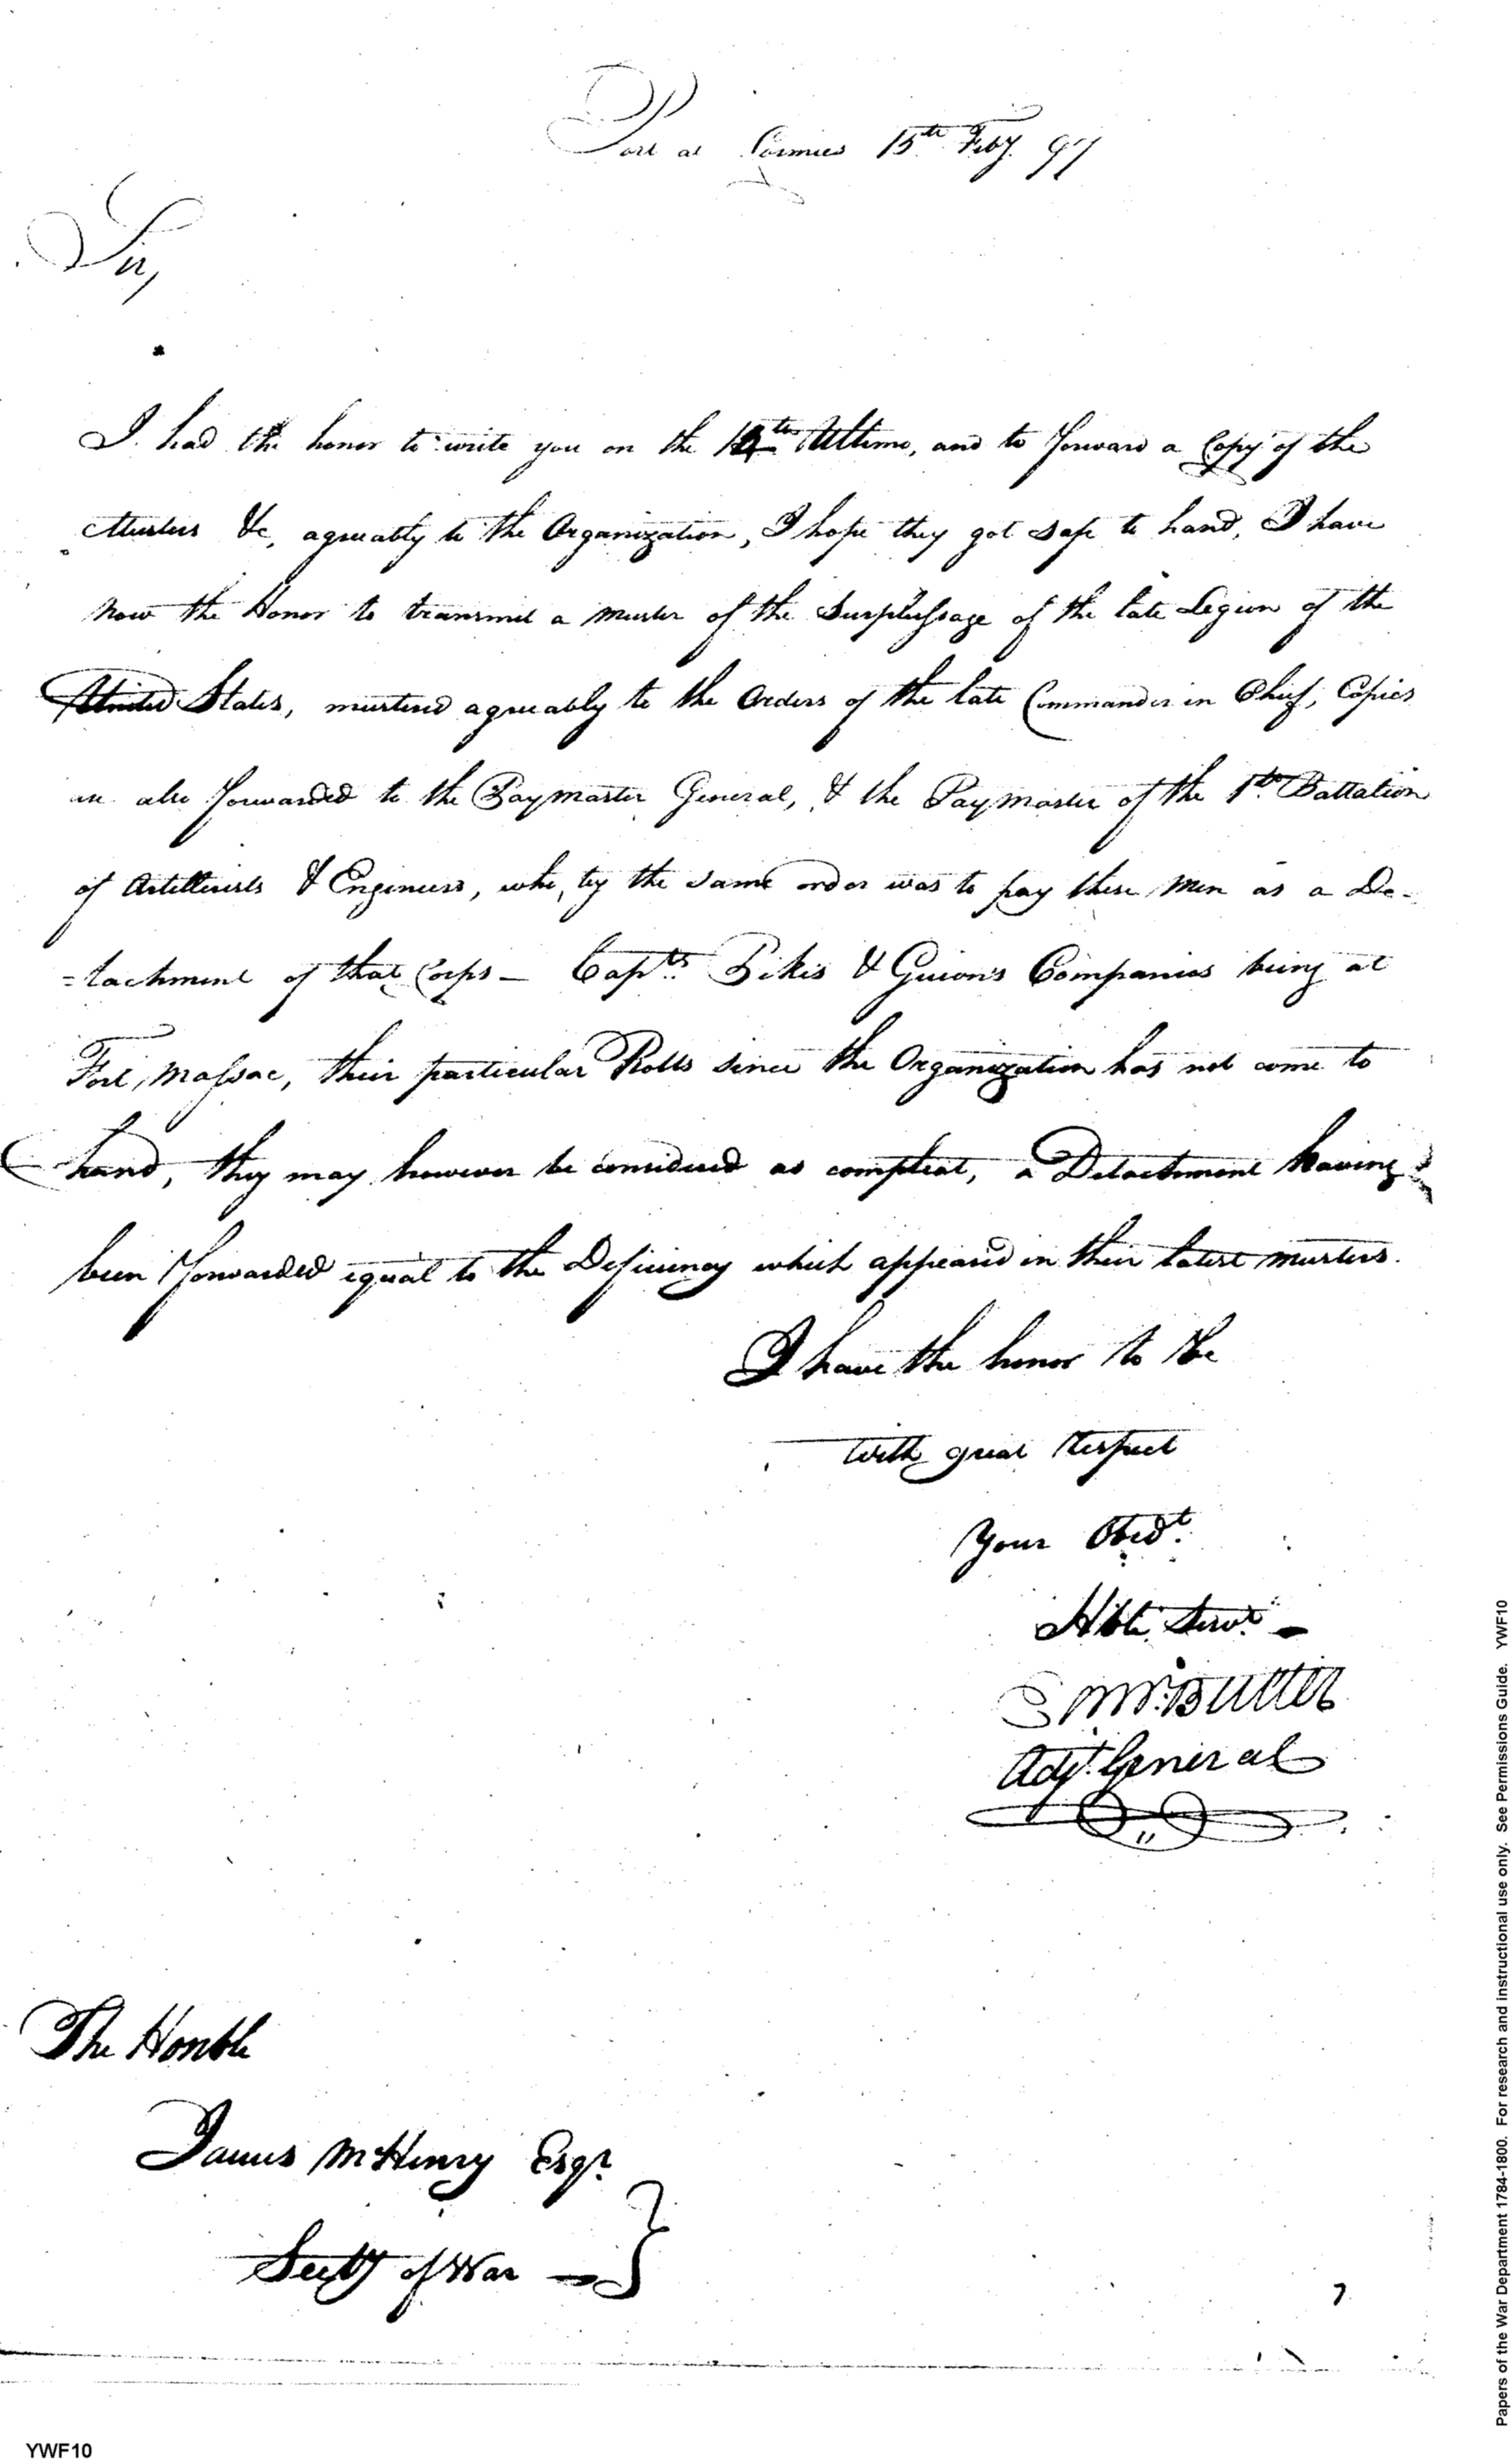 Post at Loramies 15th Feby. 97
Sir,
I had the honor to write you on the Ultimo, and to forward a Copy of the
Musters &c, agreeably to the Organization, I hope they got safe to hand, I have
now the Honor to transmit a muster of the Surplussage of the late Legion of the
United States, mustered agreeably to the Orders of the late Commander in Chief, Copies
are also forwarded to the Paymaster General, & the Paymaster of the 1st. Battalion
of Artillerists & Engineers, who, by the same order was to pay these men as a De-
=tachment of that Corps — Capts. Pikes & Guion's Companies being at
Fort, Massac, their particular Rolls since the Organization has not come to
hand, they may however be considered as compleat, a Detachment having
been forwarded equal to the Deficiency which appeared in their latest musters.
I have the honor to be
with great Respect
Your Obedt.
Hble. Servt. —
Butler
Adjt. General
The Honble
James McHenry Esqr.
Secty of War —
7
YWF10
Papers of the War Department 1784-1800. For research and instructional use only. See Permissions Guide. YWF10